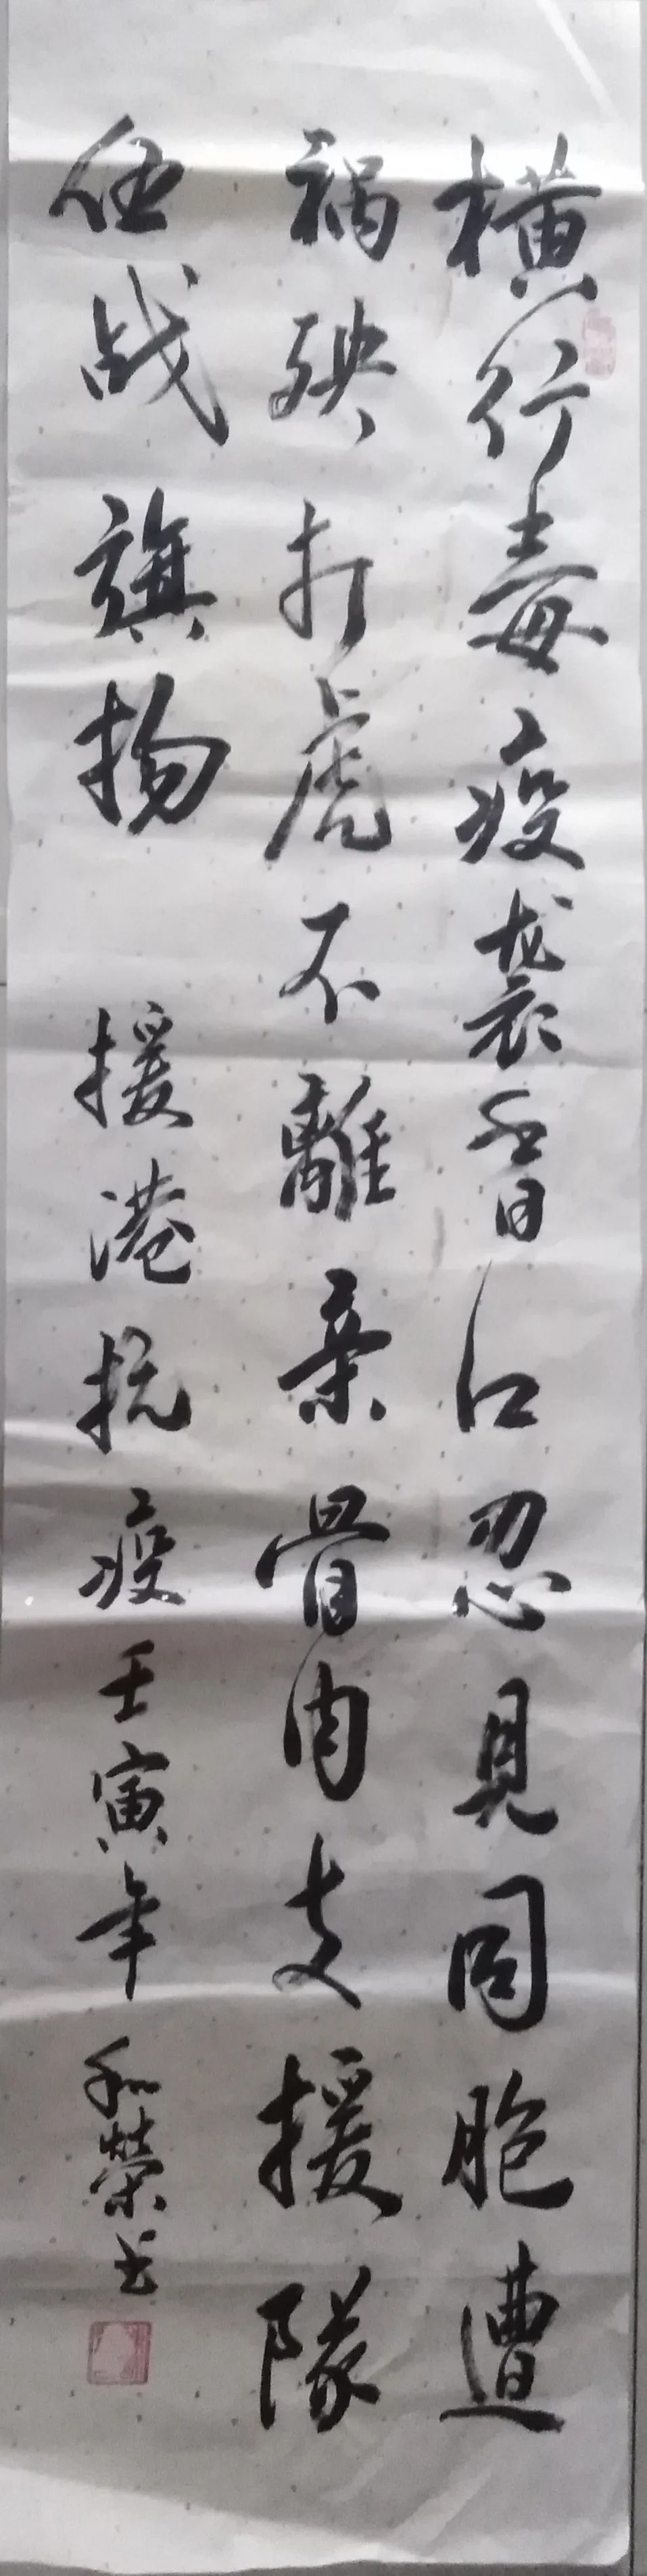 横行毒疫袭香江忍見同胞遭
祸殃打虎不離亲骨肉支援隊
伍战旗扬 援港抗疫壬寅年和荣书